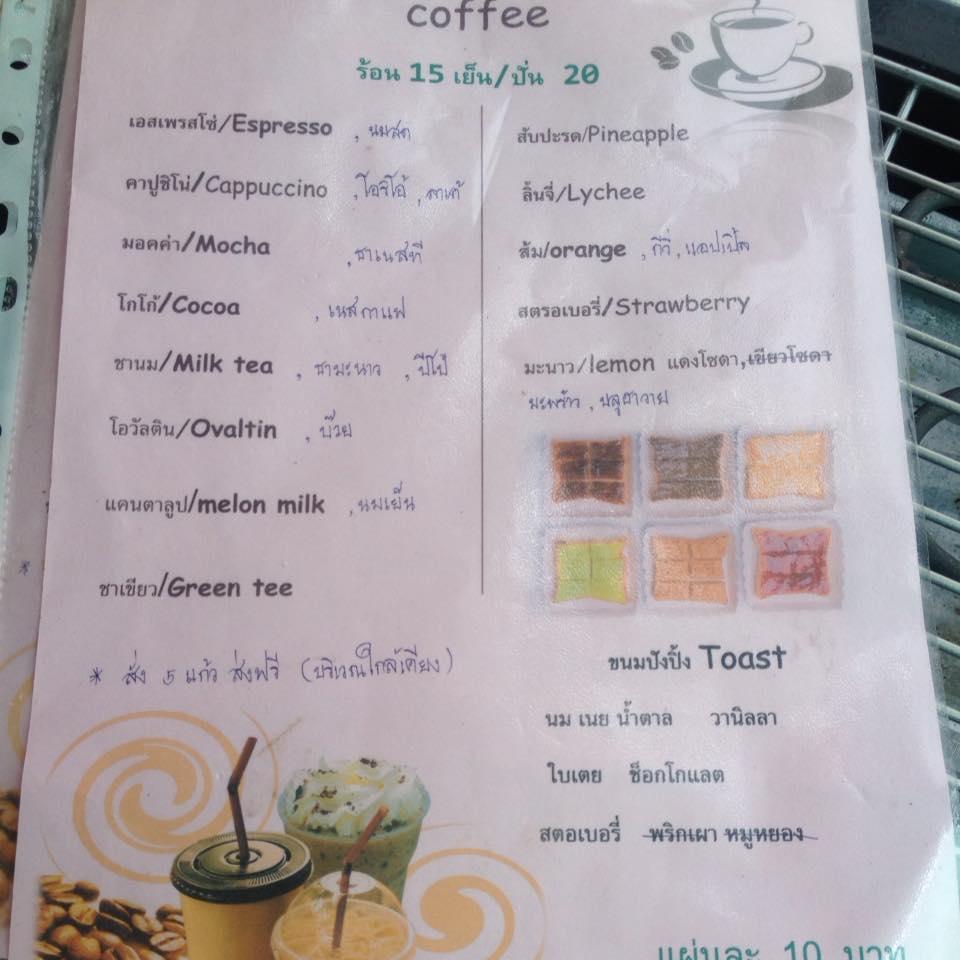 coffee
ร้อน 15 เย็น/ปั่น 20
เอสเพรสโซ่/Espresso , นมสด
คาปูชิโน่/Cappuccino ,โอริโอ้ , ลาเต้
มอคค่า/Mocha ,ชาเนสที
โกโก้/Cocoa , เนสกาแฟ
ชานม/Milk tea , ชามะนาว , ปีโป้
โอวัลติน/Ovaltin , บ๊วย
แคนตาลูป/melon milk ,นมเย็น
ชาเขียว/Green tee
* สั่ง 5 แก้ว ส่งฟรี (บริเวณใกล้เคียง)
สับปะรด/Pineapple
ลิ้นจี่/Lychee
ส้ม/orange , กีวี่ , แอปเปิ้ล
สตรอเบอรี่/Strawberry
มะนาว/lemon แดงโซดา,เขียวโซดา
มะพร้าว , บลูฮาวาย
ขนมปังปิ้ง Toast
นม เนย น้ำตาล วานิลลา
ใบเตย ช็อกโกแลต
สตอเบอรี่ พริกเผา หมูหยอง
แผ่นละ 10 บาท